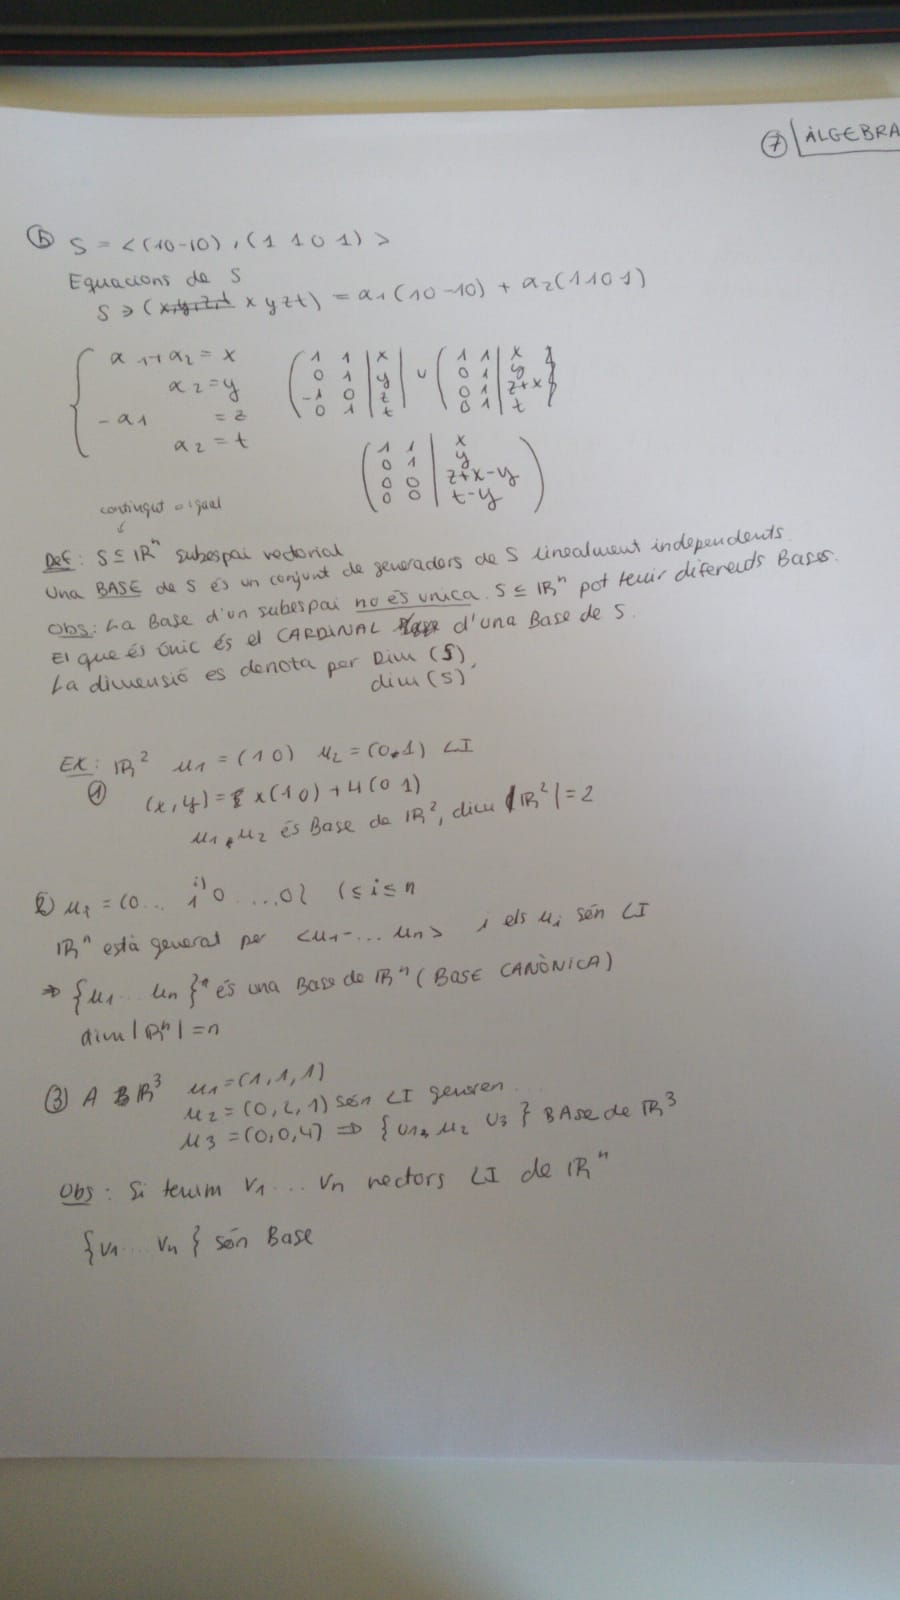 ⑦ ÀLGEBRA
ⓑ S = <(10-10), (1 1 0 1)>
Equacions de S
S ∋ (x y z t) = α1(10-10) + α2(1101)
α1+α2 = x
α2 = y
-α1 = z
α2 = t
( 1 1 | x
0 1 | y
-1 0 | z
0 1 | t
∪ ( 1 1 | x
0 1 | y
0 1 | z+x
0 1 | t )
( 1 1 | x
0 1 | y
0 0 | z+x-y
0 0 | t-y )
contingut o igual
↓
Def: S ⊆ IRⁿ subespai vectorial
Una BASE de S és un conjunt de generadors de S linealment independents.
Obs: La Base d'un subespai no és unica. S ⊆ IRⁿ pot tenir diferents Bases.
El que és únic és el CARDINAL d'una Base de S.
La dimensió es denota per Dim (S),
dim (S)
EX: IR² u1 = (1 0) u2 = (0,1) LI
① (x,y) = x(1 0) + y(0 1)
u1, u2 és Base de IR², dim |IR²| = 2
② = (0... 1 i) 0 ....0) (≤ i ≤ n
IRⁿ està general per <u1-... un> i els ui són LI
⇒ {u1... un} és una Base de IRⁿ (BASE CANÒNICA)
dim |Rⁿ| = n
③ A IR³ u1 = (1,1,1)
u2 = (0,2,1) són LI generen...
u3 = (0,0,4) ⇒ {u1, u2 u3} BAse de IR³
Obs: Si tenim v1... vn vectors LI de IRⁿ
{v1... vn} són Base